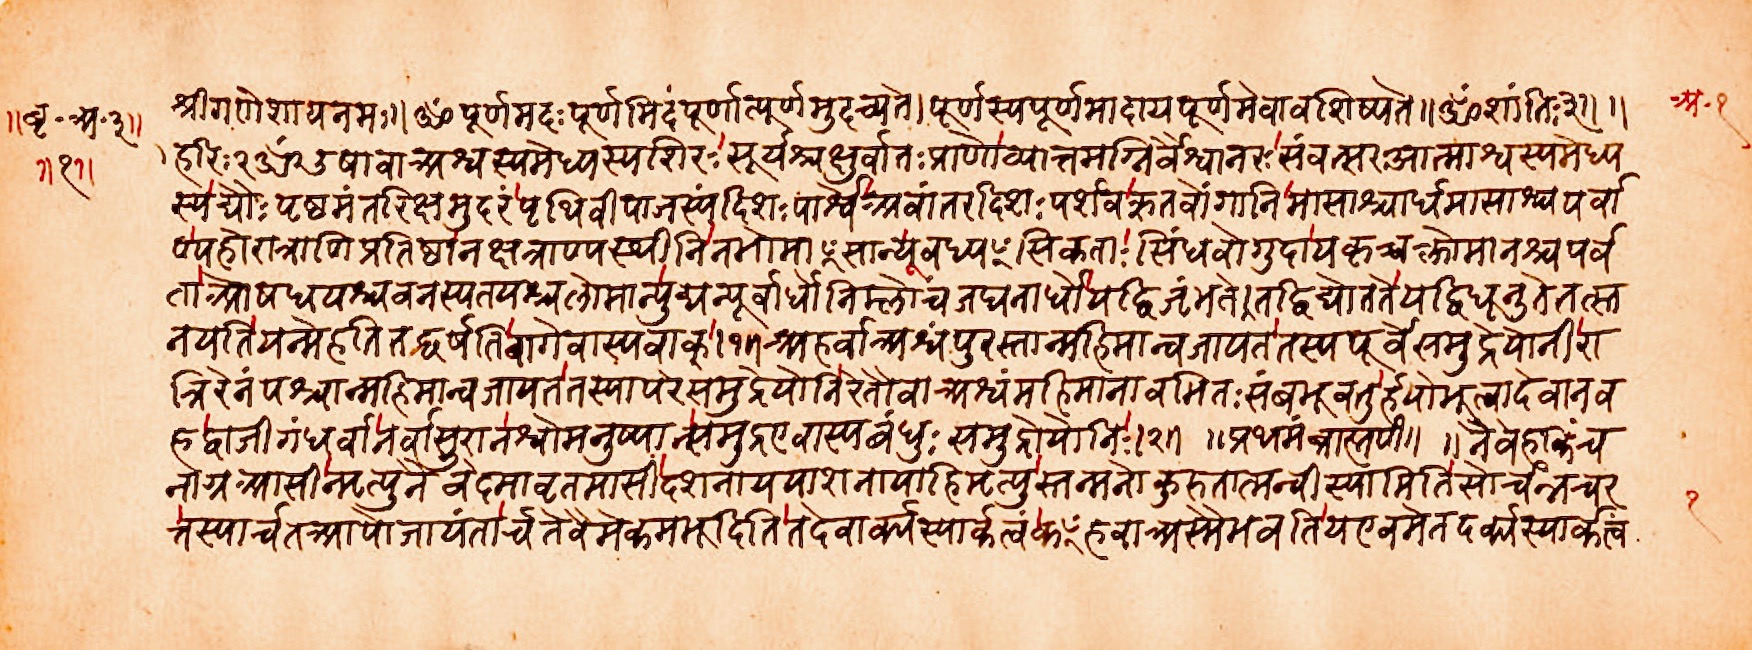 ॥बृ-अ-३॥
॥१॥
श्रीगणेशायनमः॥ॐपूर्णमदःपूर्णमिदंपूर्णात्पूर्णमुदच्यते।पूर्णस्यपूर्णमादायपूर्णमेवावशिष्यते॥ॐशांतिः३॥॥
हरिः२ॐ२उषावाअश्वस्यमेध्यस्यशिरःसूर्यश्चक्षुर्वातःप्राणोव्यात्तमग्निर्वैश्वानरःसंवत्सरआत्माश्वस्यमेध्य
स्यद्यौःपृष्ठमंतरिक्षमुदरंपृथिवीपाजस्यंदिशःपार्श्वेअवांतरदिशःपर्शवऋतवोंगानिमासाश्चार्धमासाश्चपर्वा
ण्यहोरात्राणिप्रतिष्ठानक्षत्राण्यस्थीनिनभोमाꣳसान्यूवध्यꣳसिकताःसिंधवोगुदायकृच्चक्लोमानश्चपर्व
ताओषधयश्चवनस्पतयश्चलोमान्युद्यन्पूर्वार्धोनिम्लोचंजघनार्धोयद्विजृंभते।तद्विद्योततेयद्विधूनुतेतत्स्त
नयतियन्मेहतितद्वर्षतिवागेवास्यवाक्।१॥अहर्वाअश्वंपुरस्तान्महिमान्वजायततस्यपूर्वेसमुद्रेयोनीरा
त्रिरेनंपश्चान्महिमान्वजायततस्यापरेसमुद्रेयोनिरेतौवाअश्वंमहिमानावभितःसंबभूवतुर्हयोभूत्वादेवानव
हद्वाजीगंधर्वानर्वासुरानश्वोमनुष्यान्समुद्रएवास्यबंधुःसमुद्रोयोनिः।२॥॥प्रथमंब्राह्मणं॥॥नैवेहकिंच
नाग्रआसीन्मृत्युनैवेदमावृतमासीदशनाययाशनायाहिमृत्युस्तन्मनोकुरुतात्मन्वीस्यामितिसोर्चन्नचर
त्तस्यार्चतआपोजायंतार्चतेवैमेकमभूदितितदेवार्क्यस्यार्कत्वंकꣳहवाअस्मैभवतियएवमेतदर्क्यस्यार्कत्वं
अ-१
१